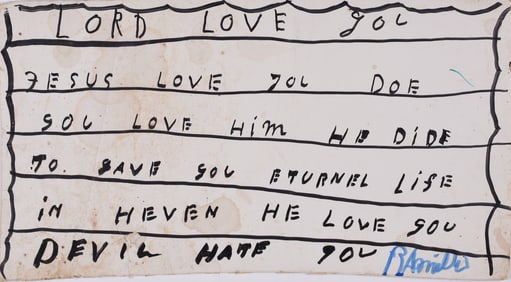 LORD LOVE YOU
JESUS LOVE YOU DOE
YOU LOVE HiM HE DiDE
TO SAVE YOU ETURNEL LiFE
iN HEVEN HE LOVE YOU
DEVIL HATE YOU